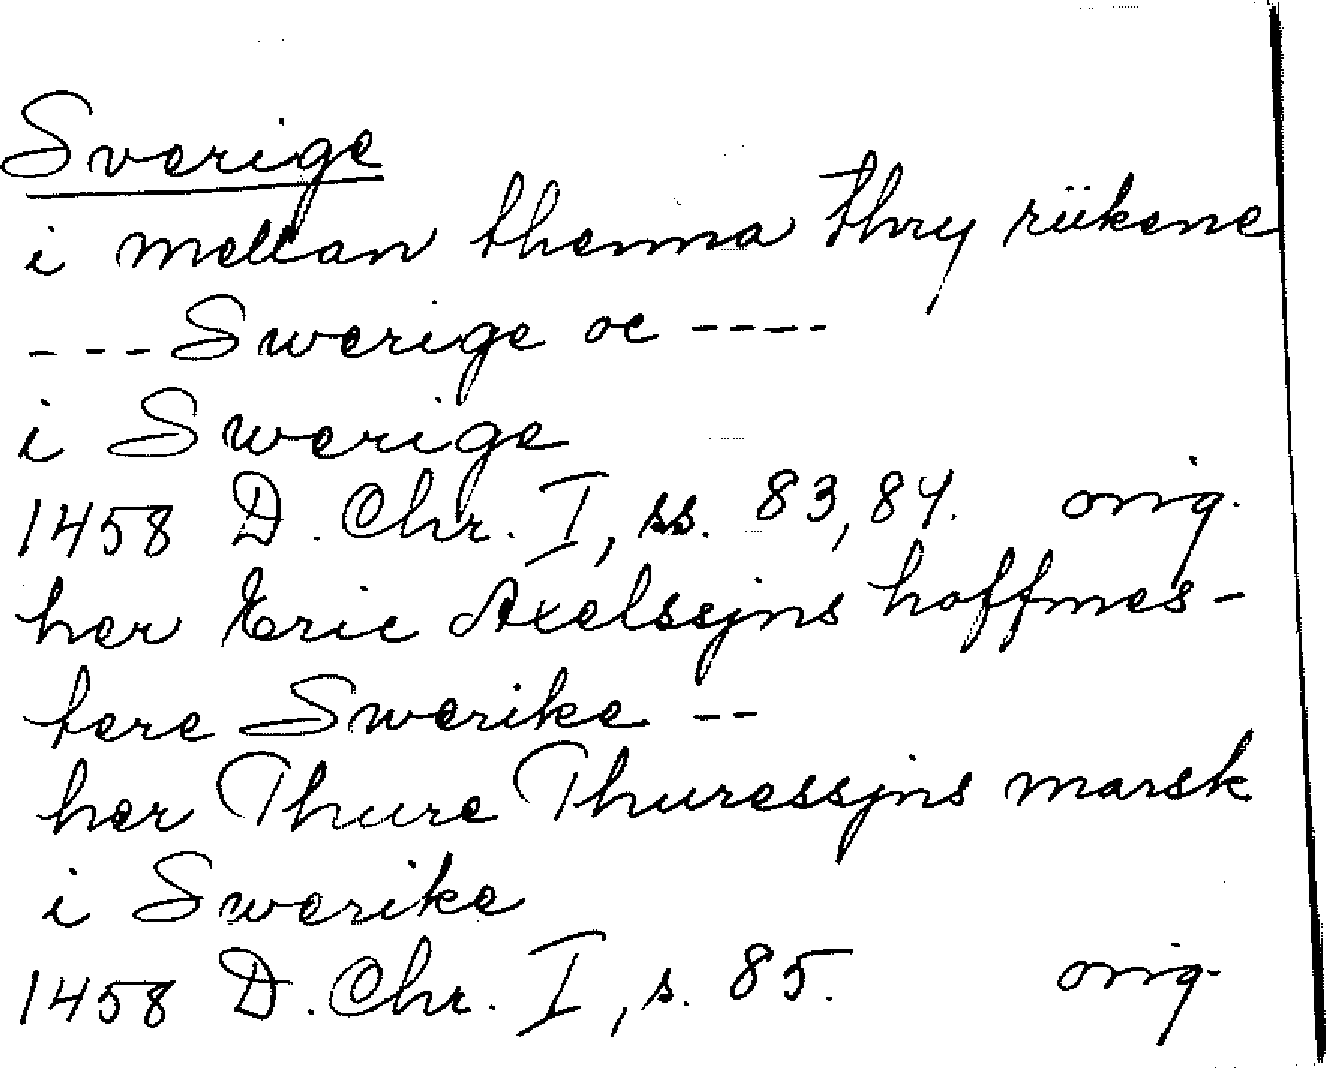 Sverige
i mellan thenna thry riikene
--- Swerige oc ----
i Swerige
1458 D. Chr. I, ss. 83, 84. orig.
her Eric Axelssøns hoffmes-
tere Swerike --
her Thure Thuressøns marsk
i Swerike
1458 D. Chr. I, s. 85. orig.